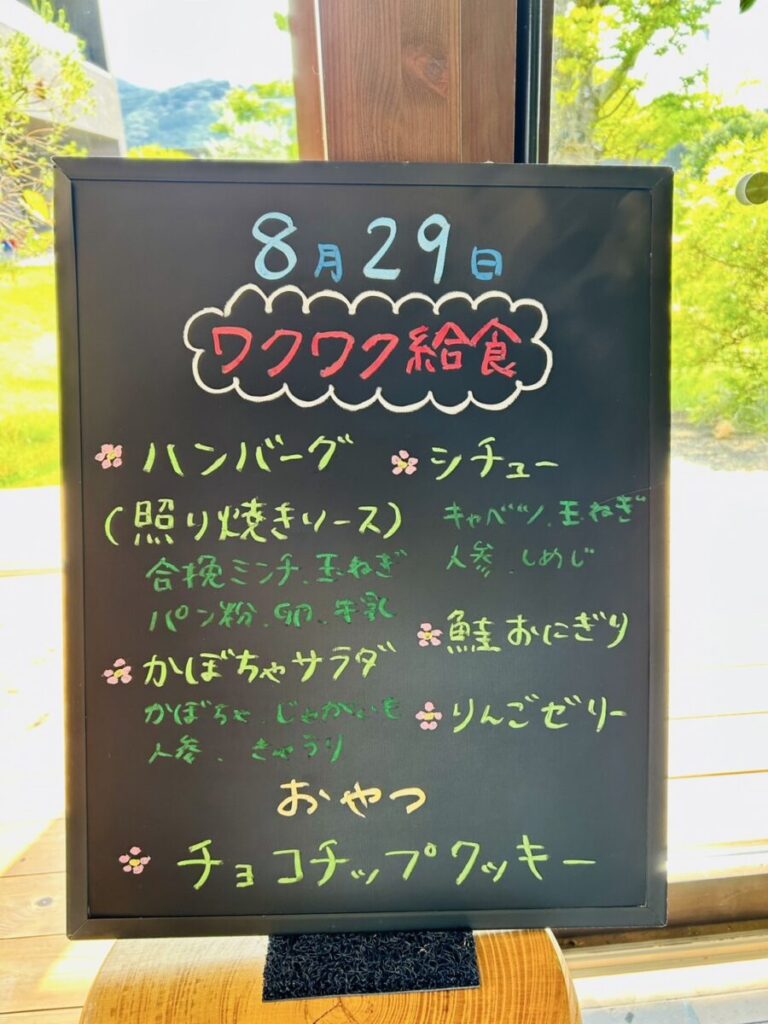 8月29日
ワクワク給食
ハンバーグ
(照り焼きソース)
合挽ミンチ、玉ねぎ
パン粉、卵、牛乳
かぼちゃサラダ
かぼちゃ、じゃがいも
人参、きゅうり
シチュー
キャベツ、玉ねぎ
人参、しめじ
鮭おにぎり
りんごゼリー
おやつ
チョコチップクッキー